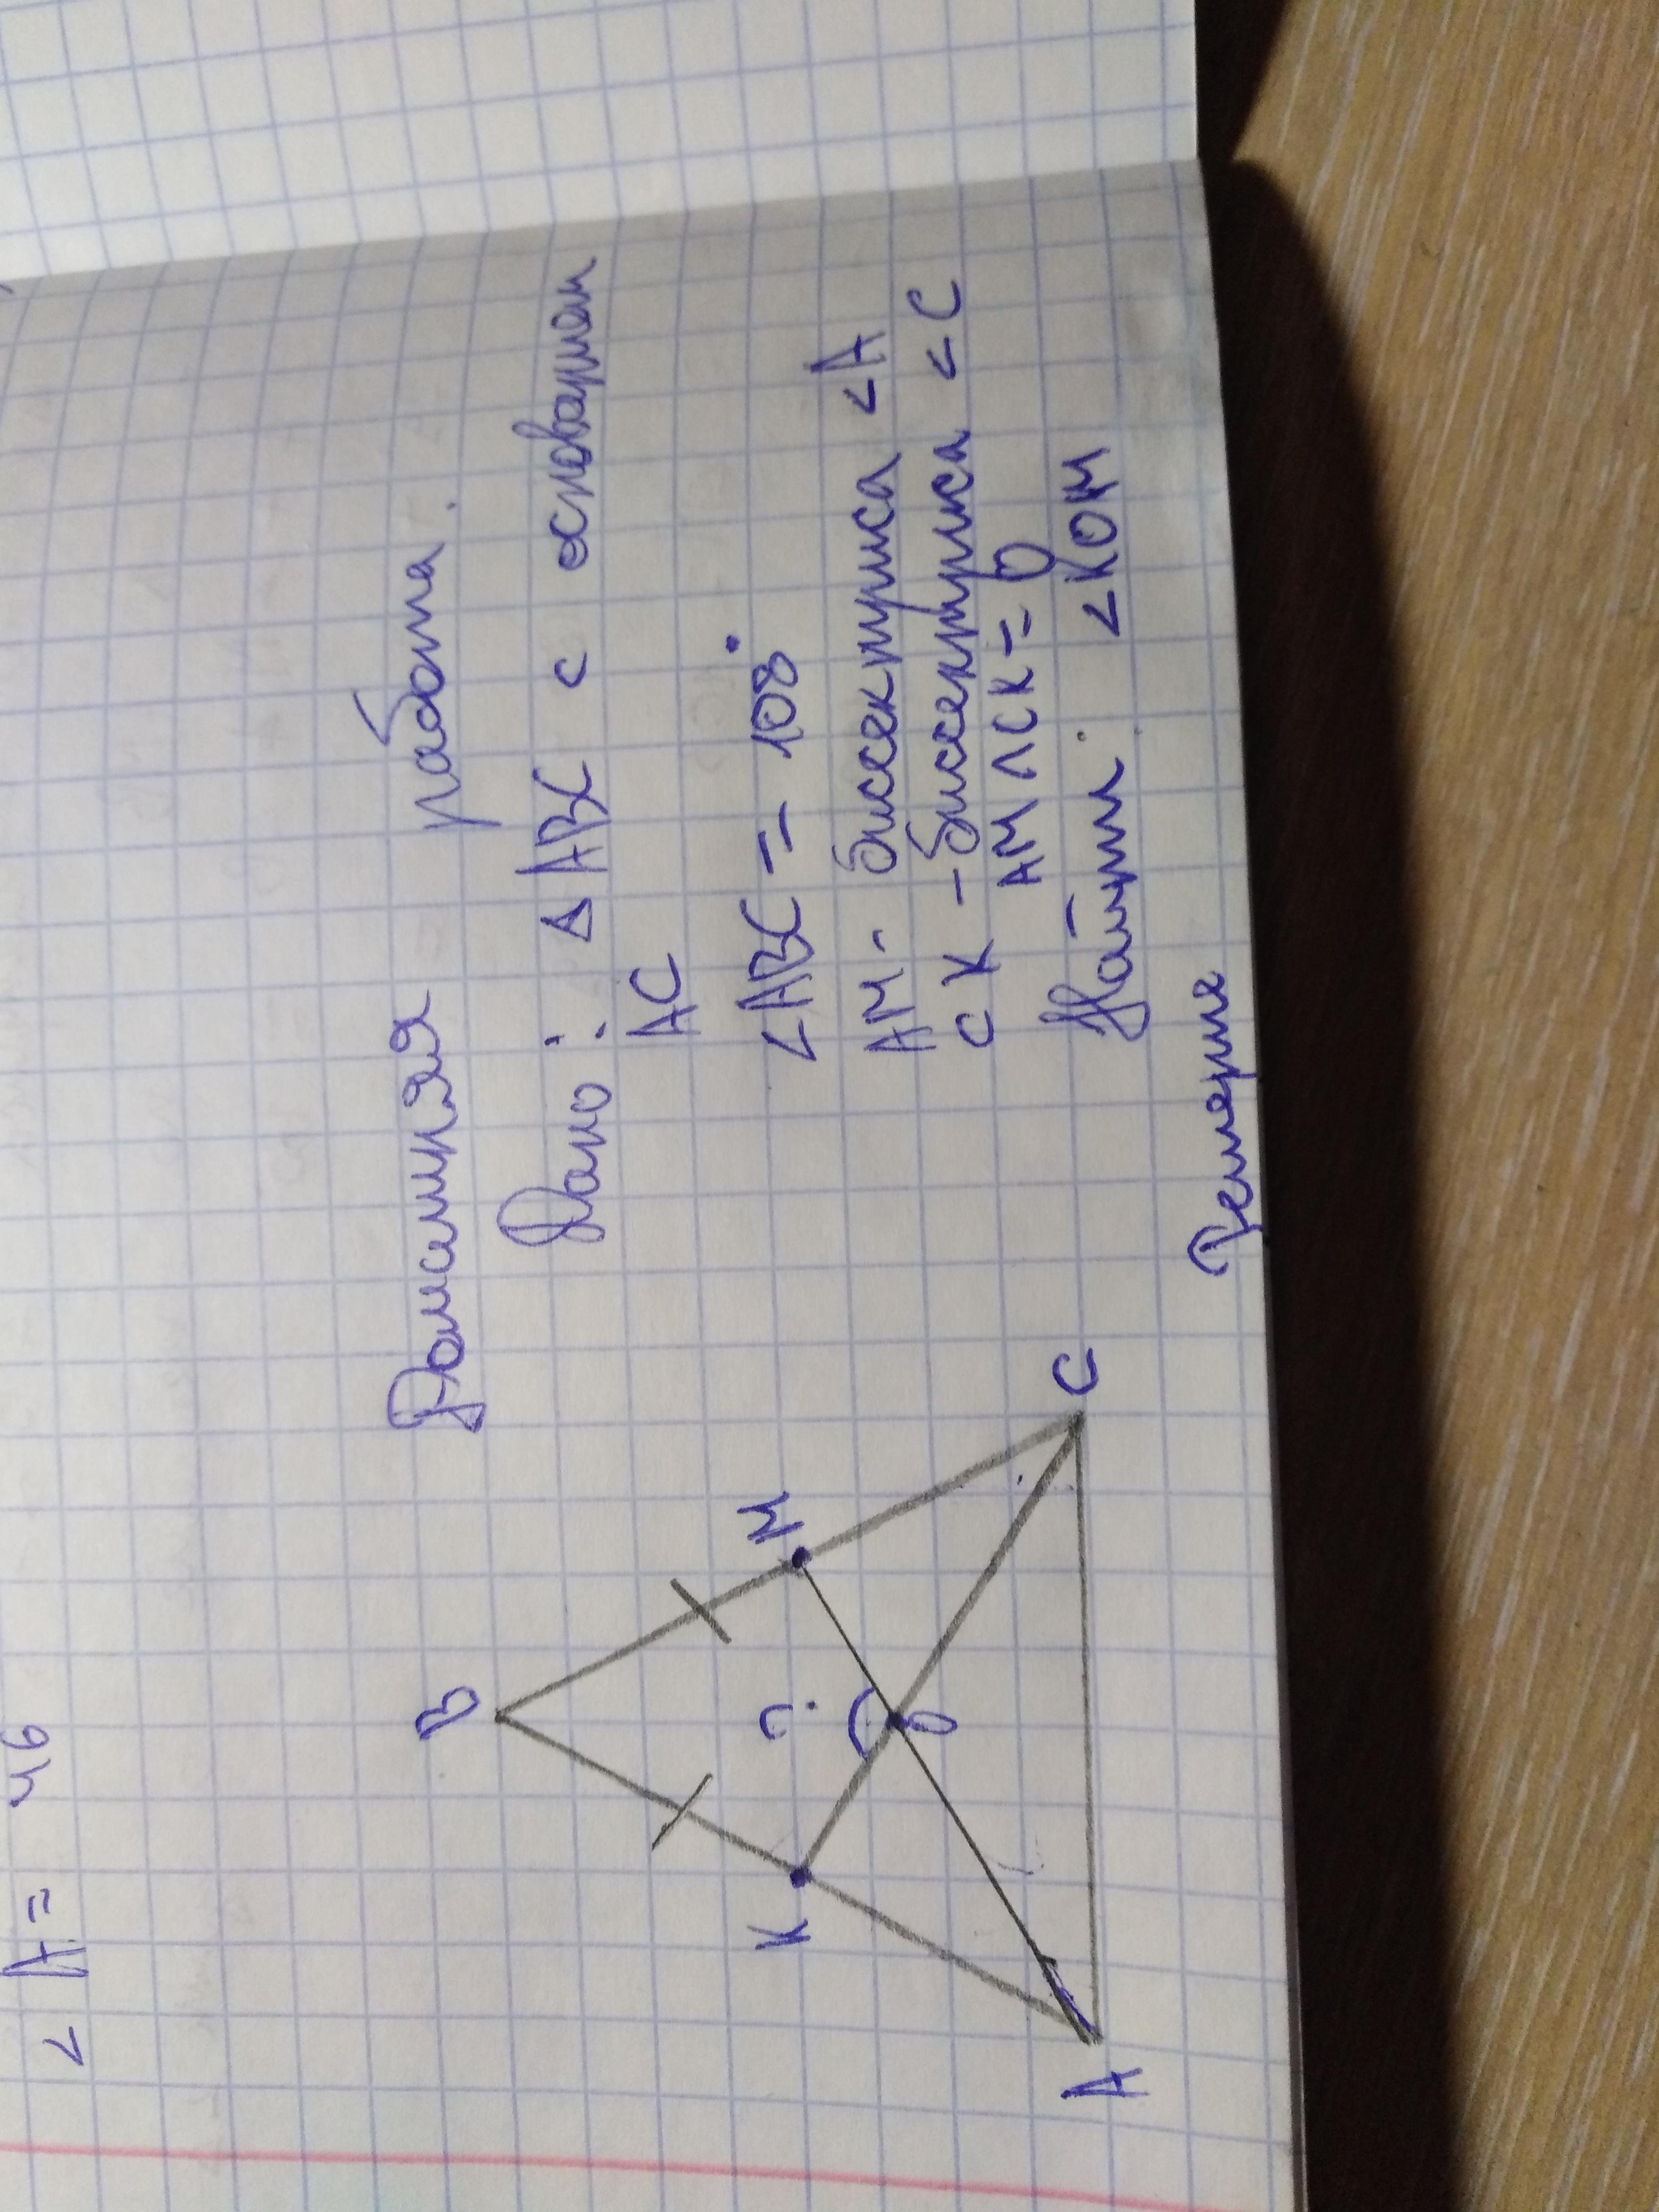 < A = 46
Домашняя работа.
Дано: Δ ABC с основанием
AC
<ABC = 108°
AM - биссектриса <A
CK - биссектриса <C
AM ∩ CK = O
Найти: <KOM
Решение
B
K
?
M
O
A
C